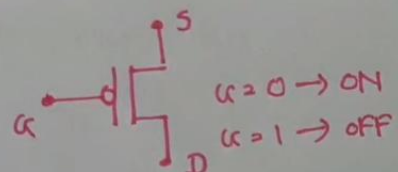 S
G
G = 0 → ON
G = 1 → OFF
D